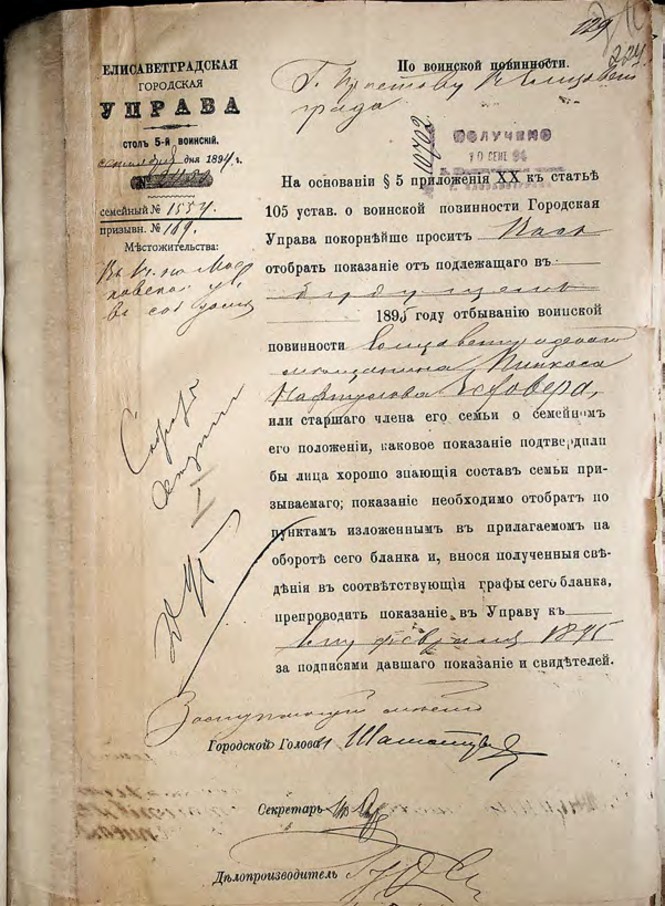 129
224
ЕЛИСАВЕТГРАДСКАЯ
ГОРОДСКАЯ
УПРАВА
СТОЛЪ 5-й ВОИНСКІЙ.
сентября дня 1894 г.
№
семейный № 1554.
призывн. № 169.
Мѣстожительства:
По воинской повинности.
Г. Приставу
града
10702
ПОЛУЧЕНО
10 СЕНТ 94
На основаніи § 5 приложенія XX къ статьѣ
105 устав. о воинской позинности Городская
Управа покорнѣйше проситъ Васъ
отобрать показаніе отъ подлежащаго въ
будущемъ
1895 году отбыванію воинской
повинности Елисаветградскаго
мѣщанина Пинкаса
или старшаго члена его семьи о семейномъ
его положеніи, каковое показаніе подтвердили
бы лица хорошо знающія составъ семьи при-
зываемаго; показаніе необходимо отобрать по
пунктамъ изложеннымъ въ прилагаемомъ на
оборотѣ сего бланка и, внося полученныя свѣ-
дѣнія въ соотвѣтствующія графы сего бланка,
препроводить показаніе въ Управу къ
1 му февраля 1895
за подписями давшаго показаніе и свидѣтелей.
Городской Голова
Секретарь
Дѣлопроизводитель